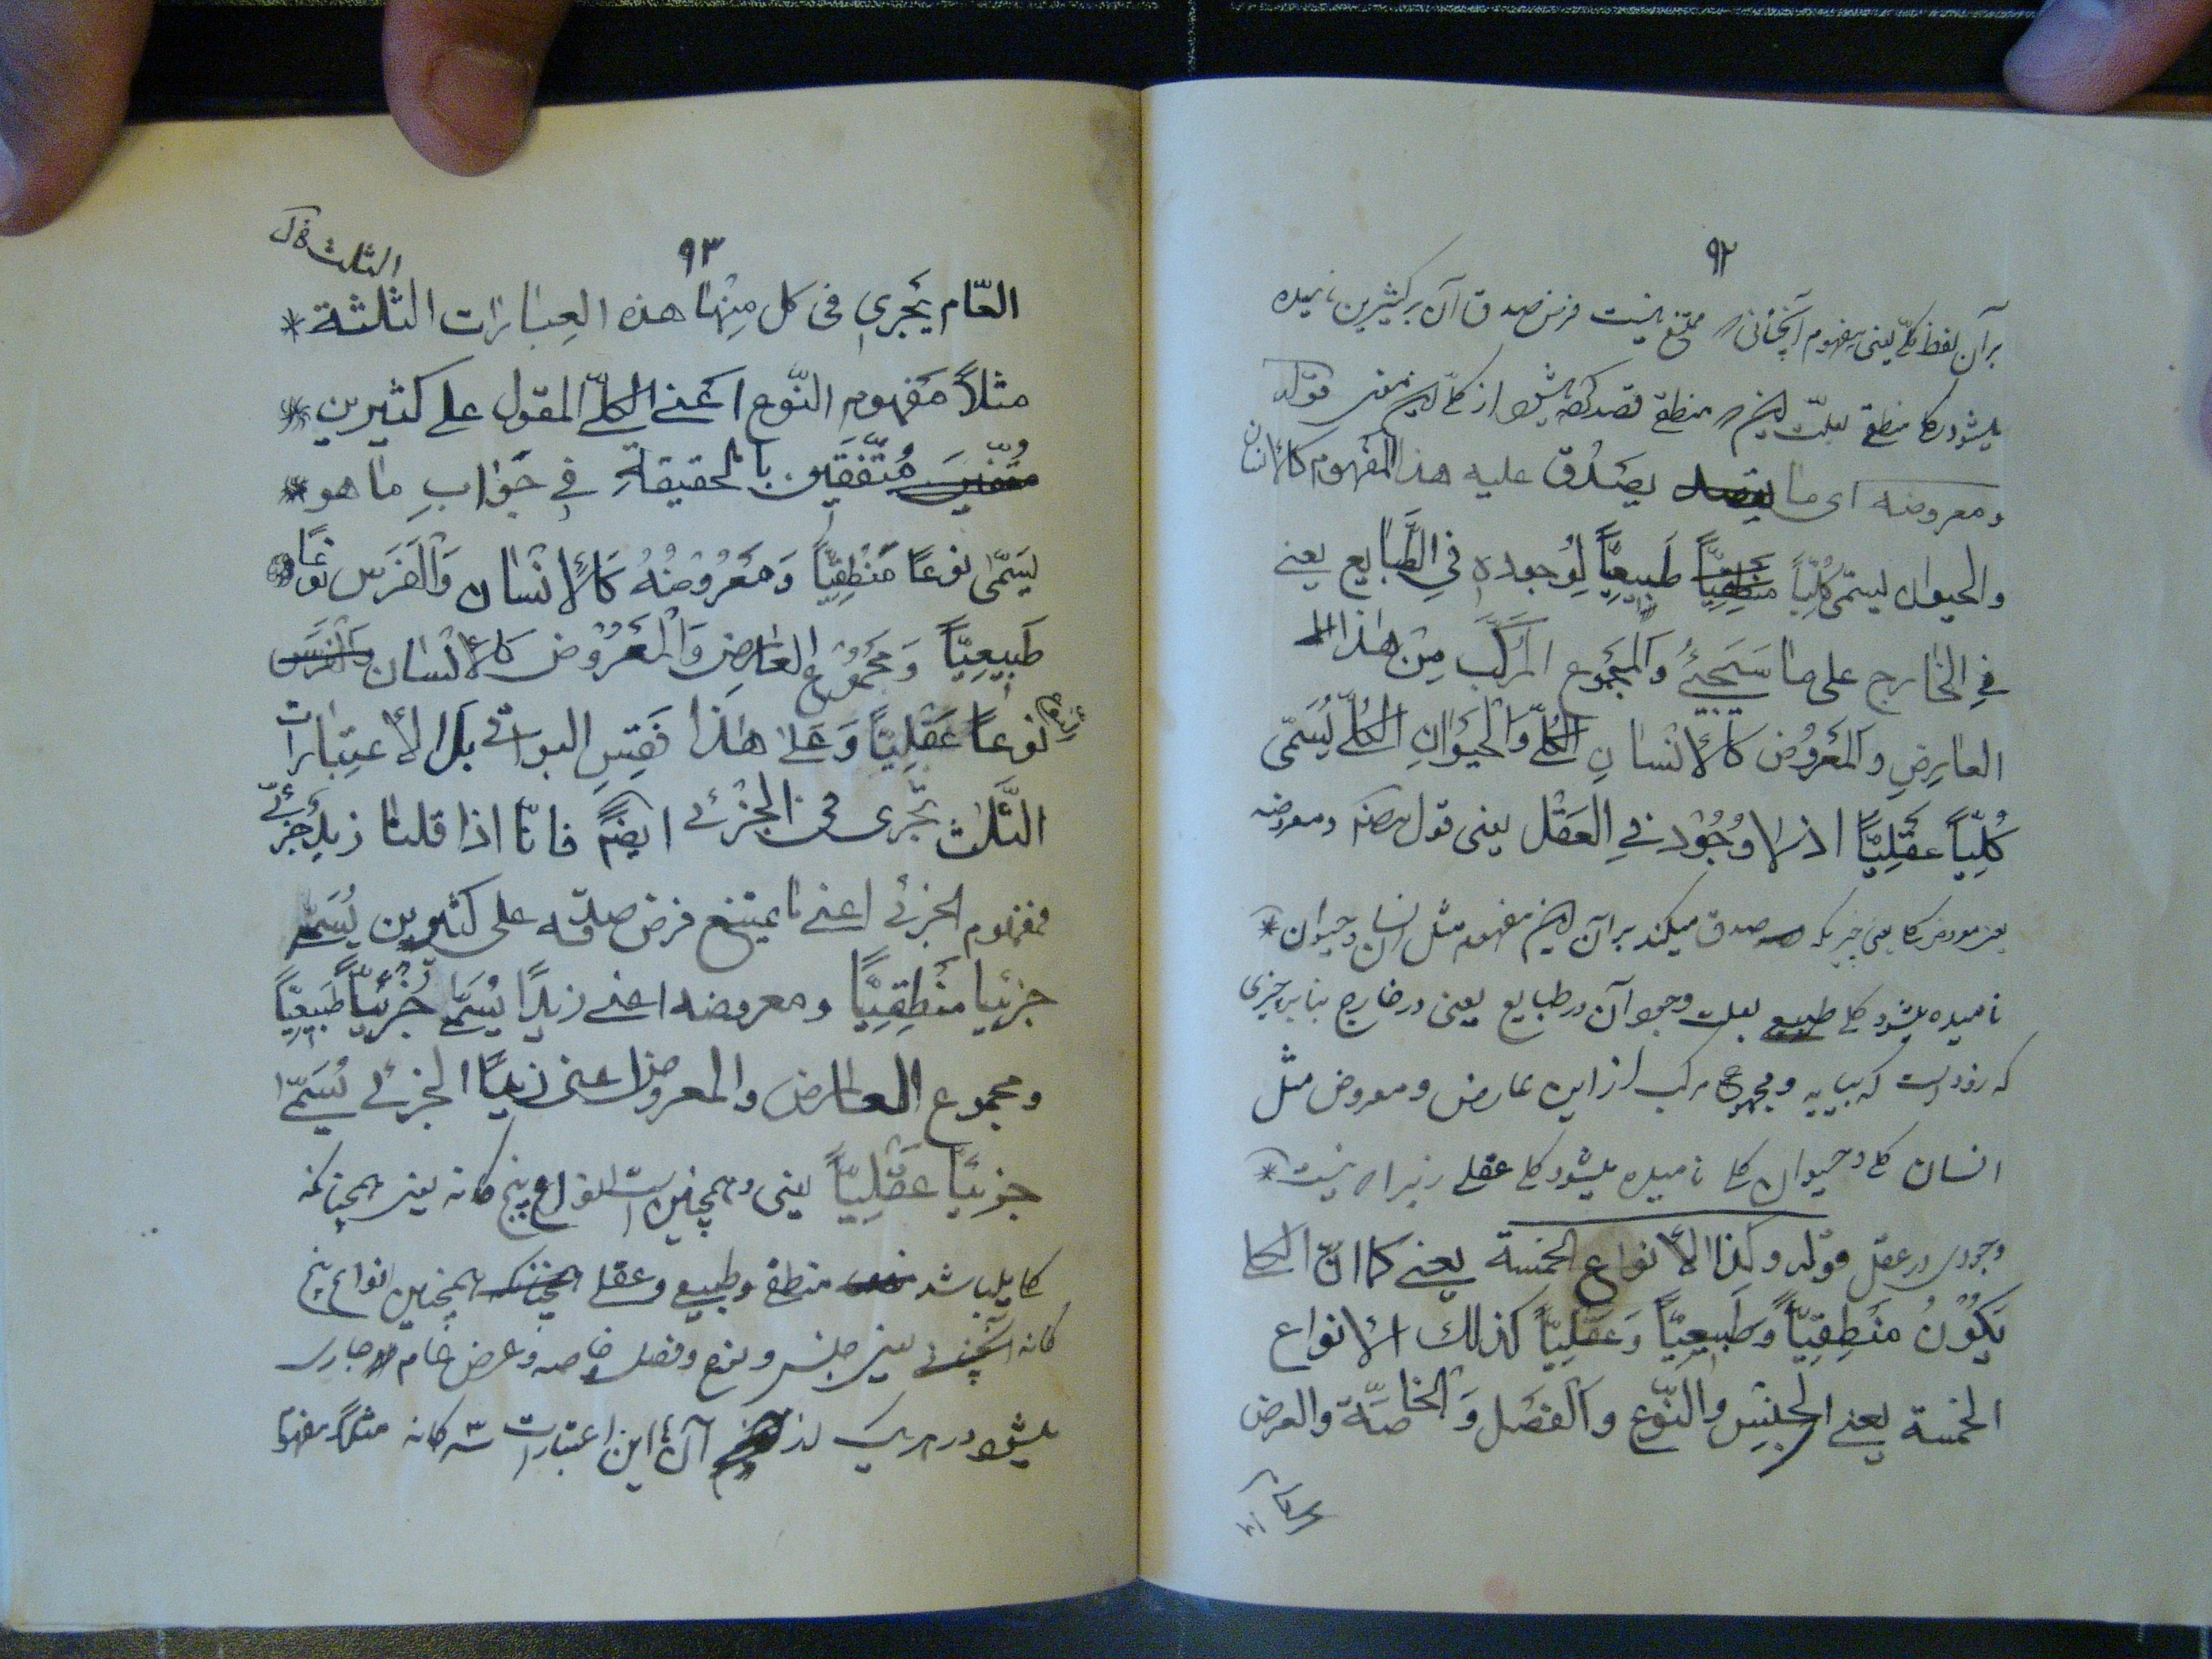 ٩٢
بر آن لفظ کلّی یعنی مفهوم آنچنانی ممتنع نیست فرض صدق آن بر کثیرین نامیده
میشود کلی منطقی بعلت منطقی قصد از کلی قوله
ومعروضه ای ما يصدق عليه هذا المفهوم كالانسان
والحيوان يسمّى كُلّيّاً طَبِيعِيّاً لِوُجوده فِي الطَّبَايِع يعني
فِي الخارج على ما سَيَجِيْئُ وَالْمَجْموع المرَكَّب مِنْ هٰذا
العارِضِ وَالمَعْرُوْض كَالأنْسانِ الكُلّي وَالْحَيَوانِ الكُلّي يُسَمّى
كُلِيّاً عَقْلِيّاً اذ لا وُجُوْد فِي العَقْل یعنی قول مصنف ومعروضه
یعنی معروض کلی یعنی چیزیکه صدق میکند بر آن این مفهوم مثل انسان و حیوان *
نامیده میشود کلی طبیعی بعلت وجود آن در طبایع یعنی در خارج بنا بر چیزی
که زود است که بیاید و مجموع مرکب از این عارض و معروض مثل
انسان کلی و حیوان کلی نامیده میشود کلی عقلی زیرا نیست *
وجودی در عقل قوله وكذا الأنواع الخمسة يعني كما انّ الكلي
يَكُوْنُ مَنْطِقِيّاً وَطَبِيعِيّاً وَعَقْلِيّاً كذلك الانواع
الخمسة يعني الجِنْسِ والنَّوْعِ والفَصْل وَالْخاصَّة والعرض
٩٣
الثلث
العّام يَجْري فى كل مِنْها هذه العِبارات الثلثة *
مثلاً مَفْهوم النّوع اَعْني الكلّي المقول على كثيرين *
مُتَّفِقَيْن بالحقيقةِ فِي جَوٰابِ ما هو *
يُسَمّٰى نوعاً مَنْطِقِيّاً وَمَعْرُوْضُهُ كَالأنْسٰان وَالْفَرَس نوعاً
طَبِيعِيّاً وَمَجْمُوْع العارِضِ وَالْمَعْرُوْض كالأنْسان
نوعاً عَقْلِيّاً وَعَلٰى هٰذا فَقِسِ البواقى بل الأعتِبارات
الثَّلٰث تَجْرى فى الجزْئى ايضاً فانّا اذا قلنا زيدٌ جزئيّ
فمفهوم الجزئى اعنى ما يمتنع فرض صدقه على كثيرين يُسَمّى
جزئيا مَنْطِقِيّاً ومعروضه اعنى زيدًا يُسَمّى جُزْئيّاً طَبِيعِيّاً
ومجموع العارض والمعروض اعنى زيدًا الجزئى يُسَمّى
جزئيّاً عَقْلِيّاً یعنی و همچنین است انواع پنج کانه یعنی همچنانکه
کلی میباشد منطقی و طبیعی و عقلی همچنین انواع پنج
کانه یعنی جنس و نوع و فصل و خاصه و عرض عام جاری
میشود در هر یک از آنها این اعتبارات سه کانه مثلاً مفهوم